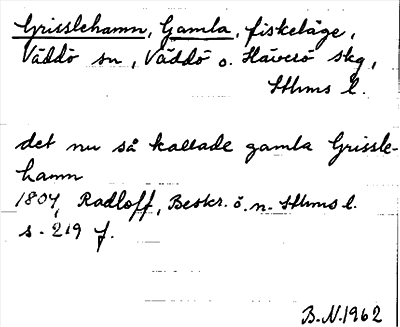 Grisslehamn, Gamla, fiskeläge,
Väddö sn, Väddö o. Häverö skg,
Sthms l.
det nu så kallade gamla Grissle-
hamn
1804, Radloff, Beskr. ö. n. Sthms l.
s. 219 f.
B.N. 1962